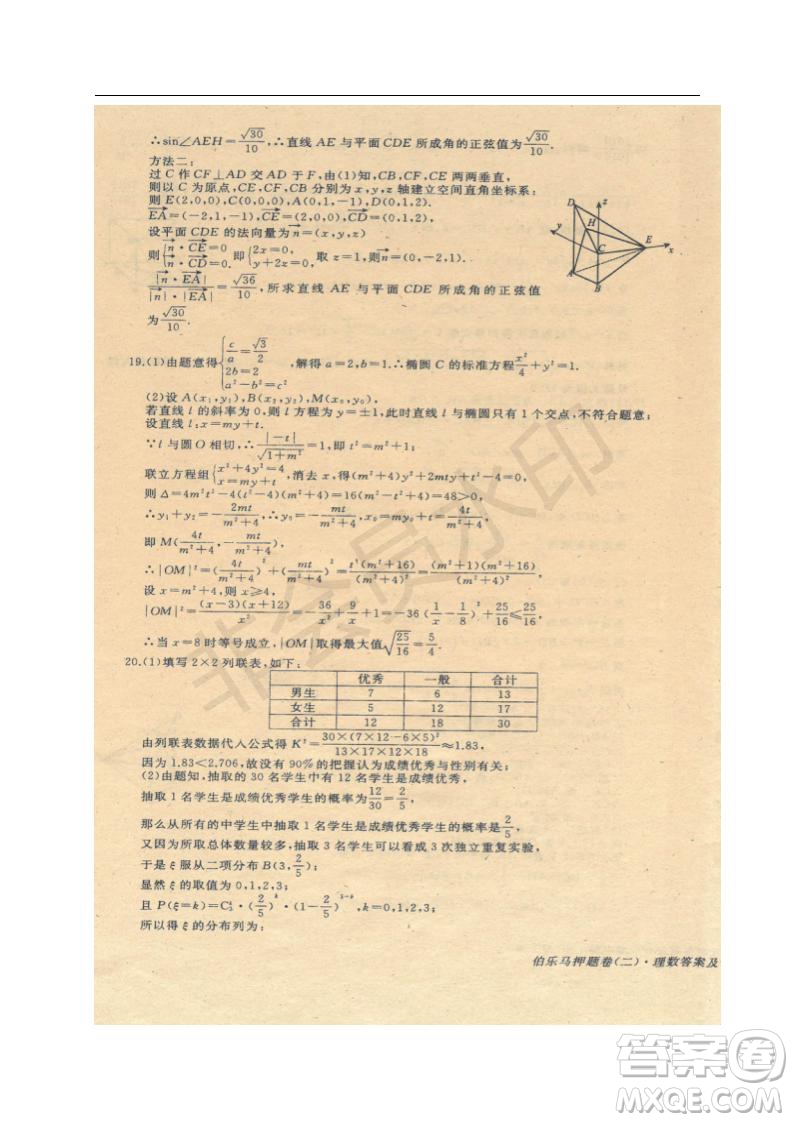 ∴sin∠AEH=√30/10,∴直线 AE 与平面 CDE 所成角的正弦值为√30/10.
方法二:
过 C 作 CF⊥AD 交 AD 于 F,由(1)知,CB,CF,CE 两两垂直,
则以 C 为原点,CE,CF,CB 分别为 x,y,z 轴建立空间直角坐标系:
则 E(2,0,0),C(0,0,0),A(0,1,-1),D(0,1,2).
EA=(-2,1,-1),CE=(2,0,0),CD=(0,1,2),
设平面 CDE 的法向量为n=(x,y,z)
则{n·CE=0 n·CD=0. 即{2x=0, y+2z=0, 取 z=1,则n=(0,-2,1).
|n·EA|/|n|·|EA|=√36/10,所求直线 AE 与平面 CDE 所成角的正弦值
为√30/10.
D
z
H
y
C
E
x
A
B
19.(1)由题意得{c/a=√3/2 2b=2 a²-b²=c²,解得 a=2,b=1.∴椭圆 C 的标准方程x²/4+y²=1.
(2)设 A(x₁,y₁),B(x₂,y₂),M(x₀,y₀).
若直线 l 的斜率为 0,则 l 方程为 y=±1,此时直线 l 与椭圆只有 1 个交点,不符合题意;
设直线 l:x=my+t.
∵l 与圆 O 相切,∴|-t|/√1+m²=1,即 t²=m²+1;
联立方程组{x²+4y²=4 x=my+t,消去 x,得(m²+4)y²+2mty+t²-4=0,
则 Δ=4m²t²-4(t²-4)(m²+4)=16(m²-t²+4)=48>0,
∴y₁+y₂=-2mt/m²+4,∴y₀=-mt/m²+4,x₀=my₀+t=4t/m²+4,
即 M(4t/m²+4,-mt/m²+4),
∴|OM|²=(4t/m²+4)²+(-mt/m²+4)²=t²(m²+16)/(m²+4)²=(m²+1)(m²+16)/(m²+4)²,
设 x=m²+4,则 x≥4,
|OM|²=(x-3)(x+12)/x²=-36/x²+9/x+1=-36(1/x-1/8)²+25/16≤25/16,
∴当 x=8 时等号成立,|OM|取得最大值√25/16=5/4.
20.(1)填写 2×2 列联表,如下:
优秀 一般 合计
男生 7 6 13
女生 5 12 17
合计 12 18 30
由列联表数据代入公式得 K²=30×(7×12-6×5)²/13×17×12×18≈1.83,
因为 1.83<2.706,故没有 90%的把握认为成绩与性别有关;
(2)由题知,抽取的 30 名学生中有 12 名学生是成绩优秀,
抽取 1 名学生是成绩优秀学生的概率为12/30=2/5,
那么从所有的中学生中抽取 1 名学生是成绩优秀学生的概率是2/5,
又因为所取总体数量较多,抽取 3 名学生可以看成 3 次独立重复实验,
于是 ξ 服从二项分布 B(3,2/5);
显然 ξ 的取值为 0,1,2,3;
且 P(ξ=k)=C₃ᵏ·(2/5)ᵏ·(1-2/5)³⁻ᵏ,k=0,1,2,3;
所以得 ξ 的分布列为:
伯乐马押题卷(二)·理数答案及
非会员水印
答案圈
MXQE.COM